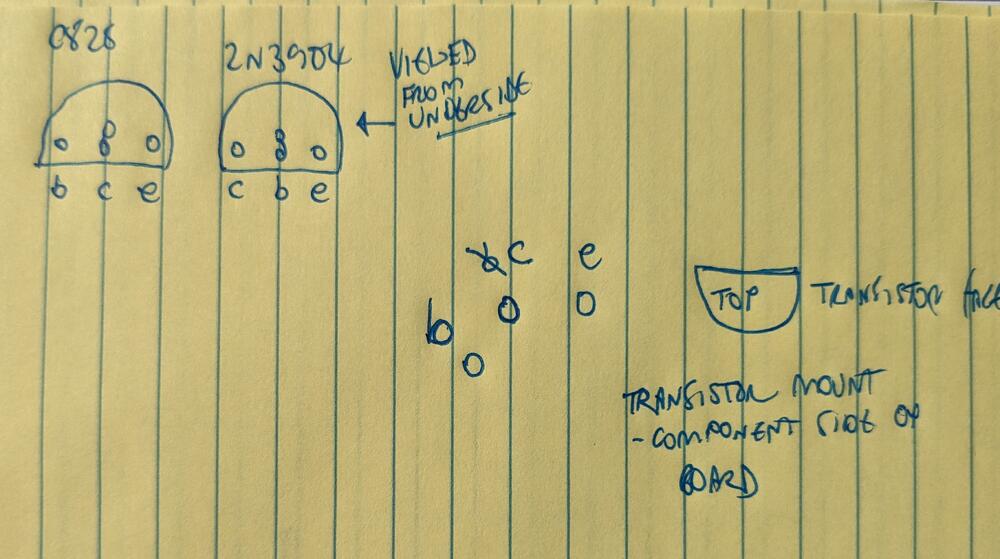 C828
2N3904
VIEWED
FROM
UNDERSIDE
b c e
c b e
c e
b
TOP
TRANSISTOR FACE
TRANSISTOR MOUNT
- COMPONENT SIDE OF
BOARD